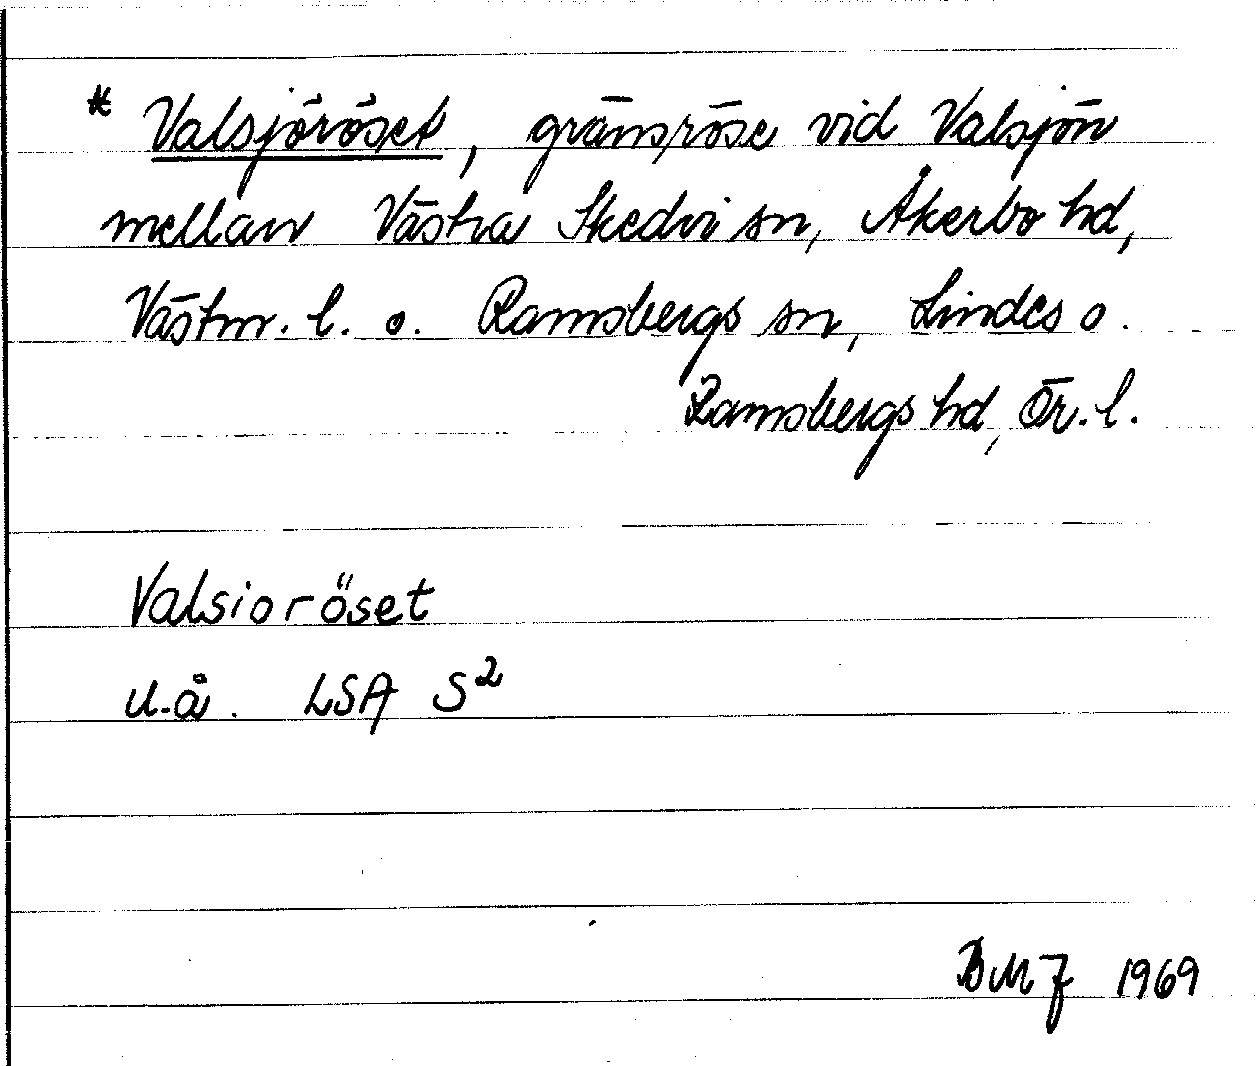 * Valsjöröset, gränsröse vid Valsjön
mellan Västra Skedvi sn, Åkerbo hd,
Västm. l. o. Ramsbergs sn, Lindes o.
Ramsbergs hd, Ör. l.
Valsioröset
u.å. LSA S²
BMJ 1969